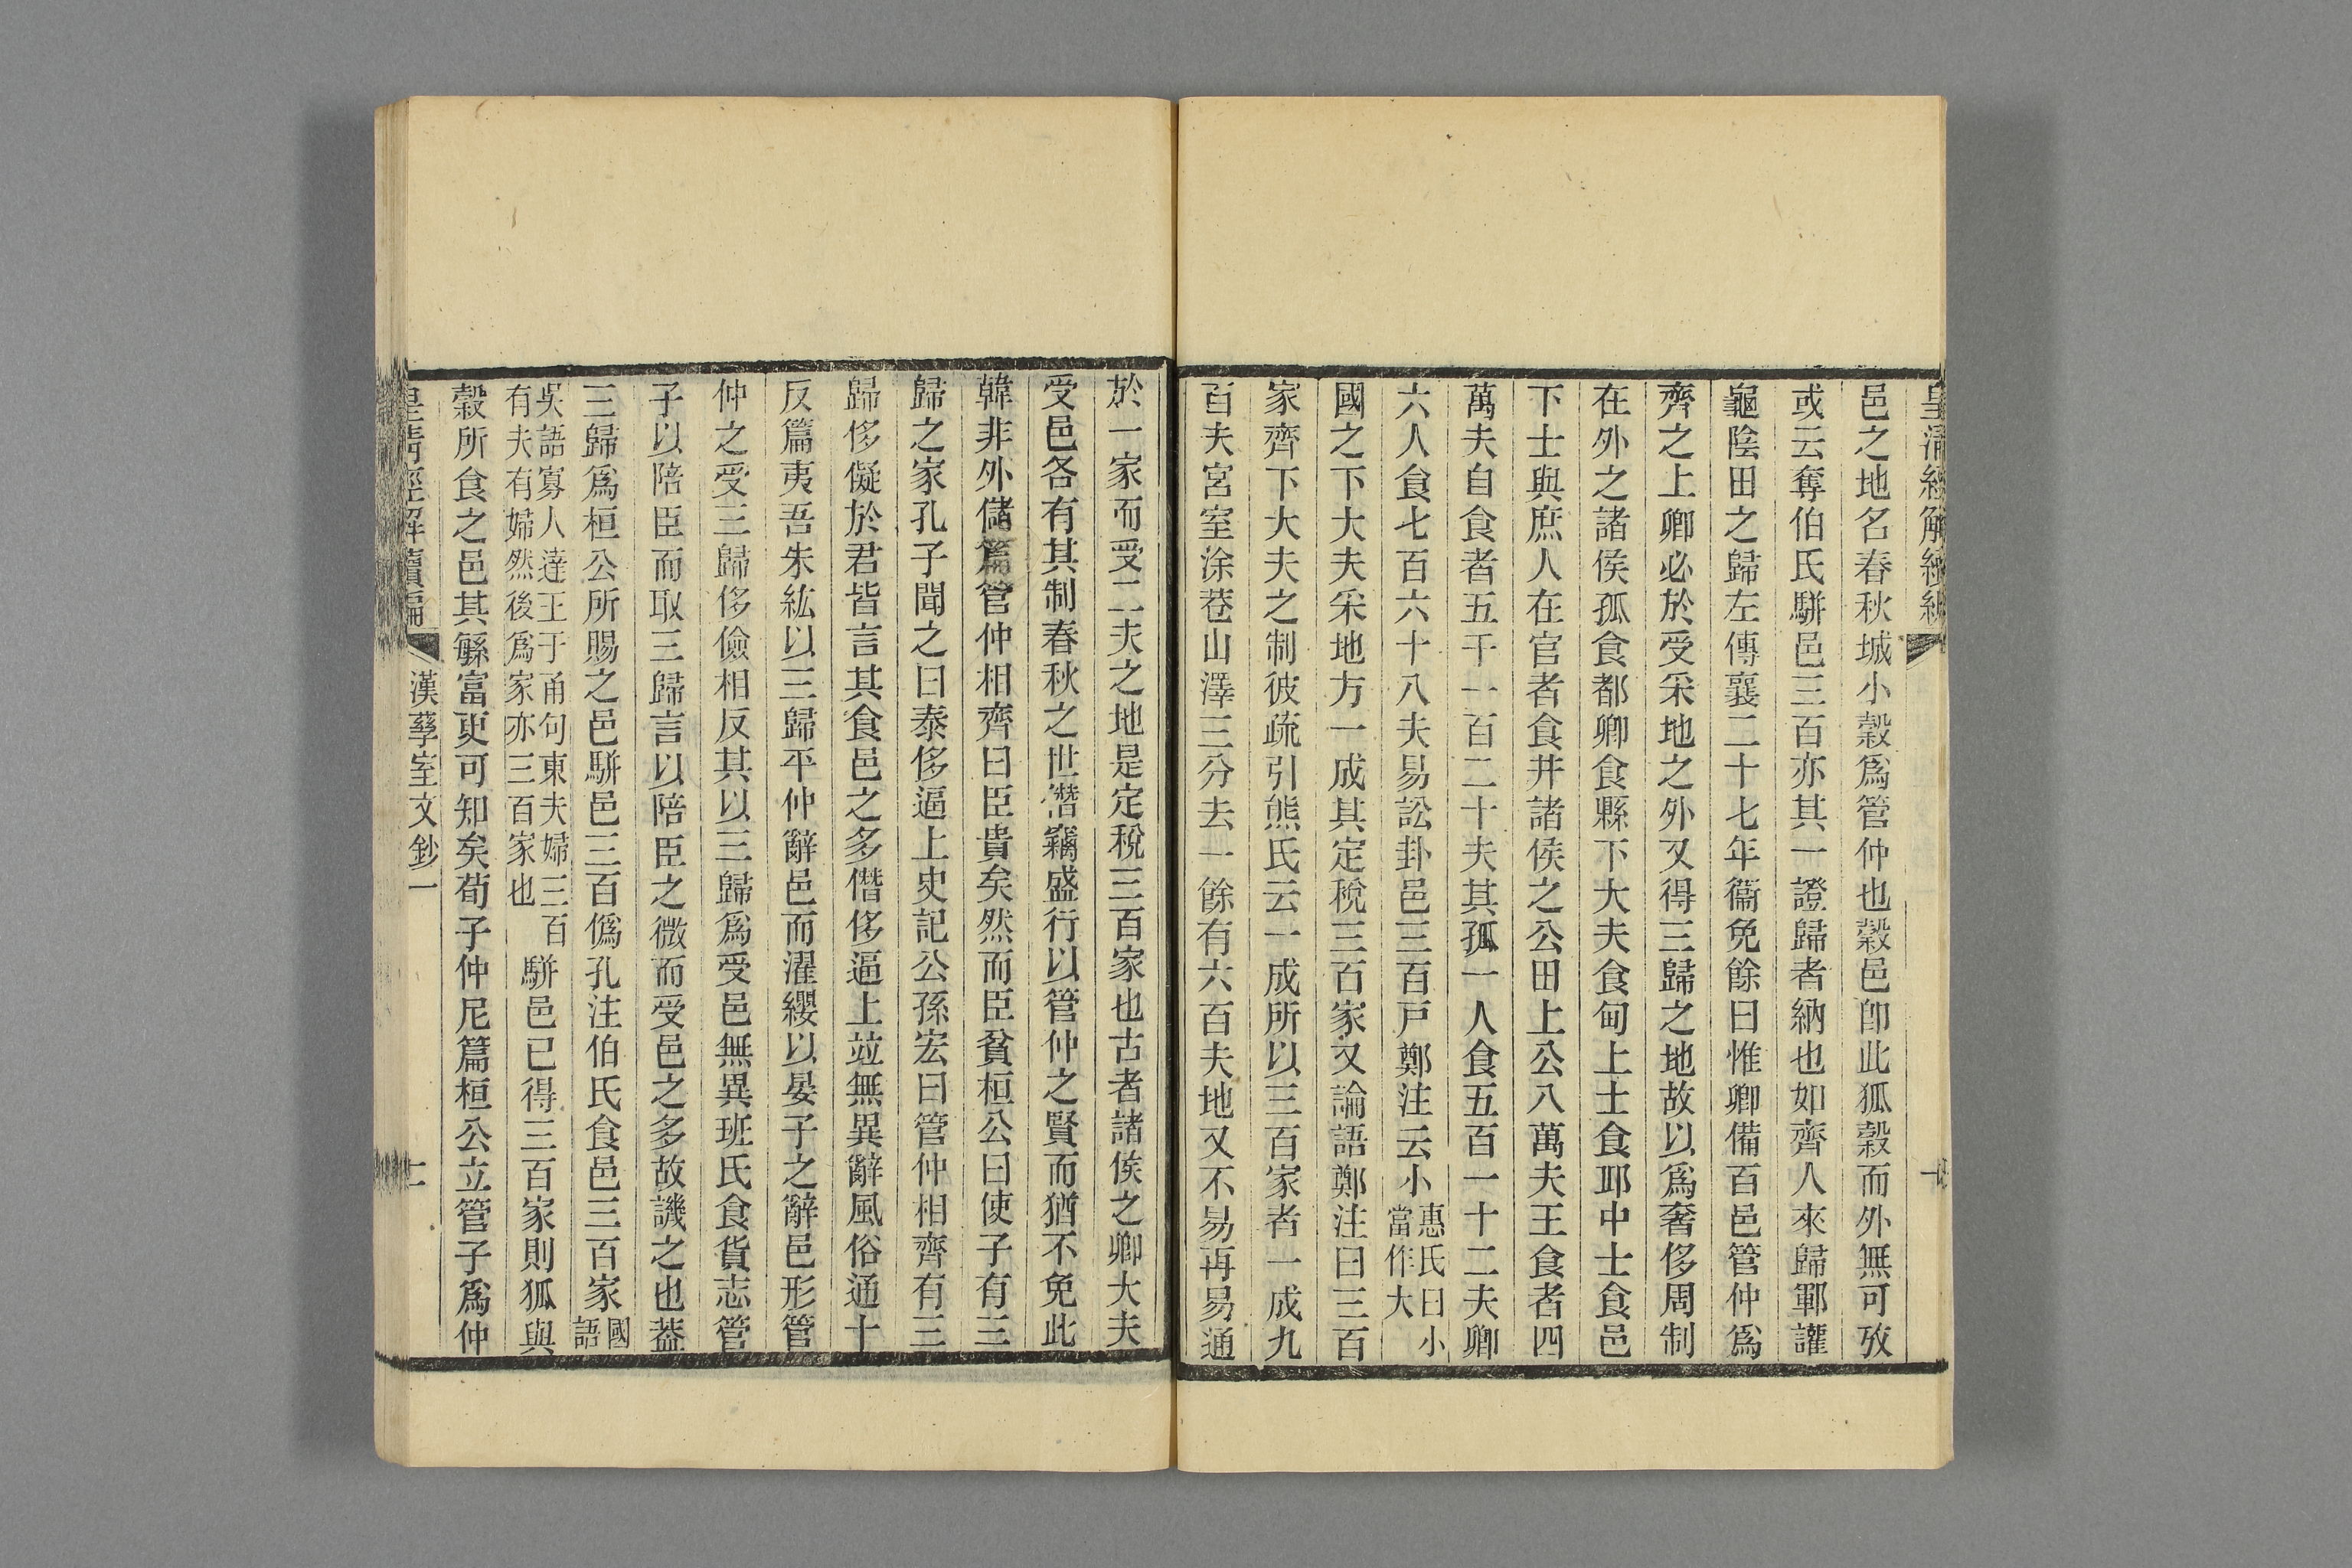 皇清經解續編
邑之地名春秋城小穀爲管仲也穀邑卽此狐穀而外無可攷
或云奪伯氏騈邑三百亦其一證歸者納也如齊人來歸鄆讙
龜陰田之歸左傳襄二十七年衞免餘曰惟卿備百邑管仲爲
齊之上卿必於受采地之外又得三歸之地故以爲奢侈周制
在外之諸侯孤食都卿食縣下大夫食甸上士食邱中士食邑
下士與庶人在官者食井諸侯之公田上公八萬夫王食者四
萬夫自食者五千一百二十夫其孤一人食五百一十二夫卿
六人食七百六十八夫易訟卦邑三百戸鄭注云小惠氏曰小當作大
國之下大夫采地方一成其定稅三百家又論語鄭注曰三百
家齊下大夫之制彼疏引熊氏云一成所以三百家者一成九
百夫宮室涂巷山澤三分去一餘有六百夫地又不易再易通
於一家而受二夫之地是定稅三百家也古者諸侯之卿大夫
受邑各有其制春秋之世僭竊盛行以管仲之賢而猶不免此
韓非外儲篇管仲相齊曰臣貴矣然而臣貧桓公曰使子有三
歸之家孔子聞之曰泰侈逼上史記公孫宏曰管仲相齊有三
歸侈儗於君皆言其食邑之多僭侈逼上竝無異辭風俗通十
反篇夷吾朱紘以三歸平仲辭邑而濯纓以晏子之辭邑形管
仲之受三歸侈儉相反其以三歸爲受邑無異班氏食貨志管
子以陪臣而取三歸言以陪臣之微而受邑之多故譏之也葢
三歸爲桓公所賜之邑騈邑三百僞孔注伯氏食邑三百家國語
吳語寡人達王于甬句東夫婦三百有夫有婦然後爲家亦三百家也騈邑已得三百家則狐與
穀所食之邑其緐富更可知矣荀子仲尼篇桓公立管子爲仲
皇清經解續編　漢孳室文鈔一